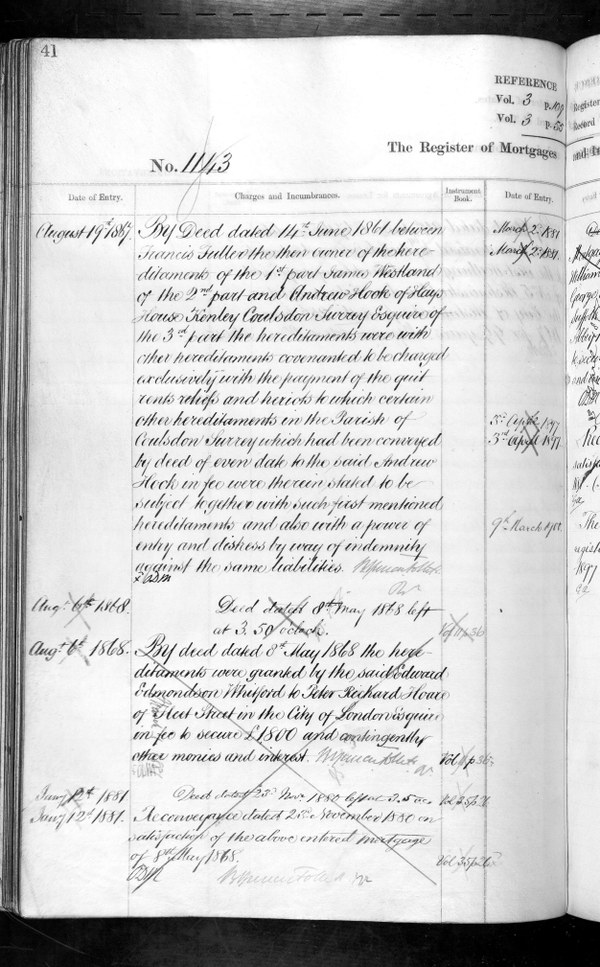 41
REFERENCE
Vol. 3 p.
Vol. 3 p. 50
The Register of Mortgages
No. 1143
Date of Entry.
Charges and Incumbrances.
Instrument
Book.
Date of Entry.
August 19th 1867.
By Deed dated 14th June 1861 between
Francis Fuller the then owner of the here-
ditaments of the 1st part James Westland
of the 2nd part and Andrew Hook of Hays
House Kenley Coulsdon Surrey Esquire of
the 3rd part the hereditaments were with
other hereditaments covenanted to be charged
exclusively with the payment of the quit
rents reliefs and heriots to which certain
other hereditaments in the Parish of
Coulsdon Surrey which had been conveyed
by deed of even date to the said Andrew
Hook in fee were therein stated to be
subject together with such first mentioned
hereditaments and also with a power of
entry and distress by way of indemnity
against the same liabilities.
Augt 6th 1868.
Deed dated 8th May 1868 left
at 3.50 oclock.
Vol p 36
Augt 6th 1868.
By deed dated 8th May 1868 the here-
ditaments were granted by the said Edward
Edmondson Whiford to Peter Richard Hoare
of Fleet Street in the City of London Esquire
in fee to secure £1800 and contingently
other monies and interest.
Vol p 36
Jany 12th 1881
Deed dated 23rd Novr 1880 left at 3.5 oc.
Vol 35 p 26
Jany 12th 1881.
Reconveyance dated 23rd November 1880 in
satisfaction of the above entered mortgage
of 8th May 1868.
Vol 35 p 26
March 2nd 1881
March 2nd 1881.
3rd April 1897
3rd April 1897
9th March 1900
Register
Record
and In
George
The
regist
1897